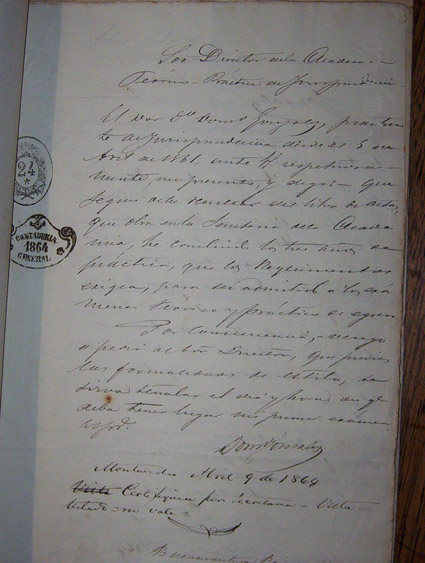 Sor Director de la Academia
Teórico-Practica de Jurisprudencia
El Dor Dn Domo Gonzalez, practican-
te de Jurisprudencia desde el 5 de
Abril de 1861, ante V. respetuosa-
mente, me presento, y digo: que
segun debe constar del libro de actas,
que obra en la Secretaria de la Acade-
mia, he concluido los tres años de
práctica, que los Reglamentos
exigen, para ser admitido a los exá-
menes teórico y práctico de egreso
Por consecuencia, vengo
a pedir al Sor Director, que previas
las formalidades de estilo, se
sirva señalar el dia y hora en qe
deba tener lugar mi primer examen
Domo Gonzalez
Montevideo Abril 9 de 1864
Certifique por Secretaria - Vista
testado no vale
24
CONTADURIA
1864
GENERAL